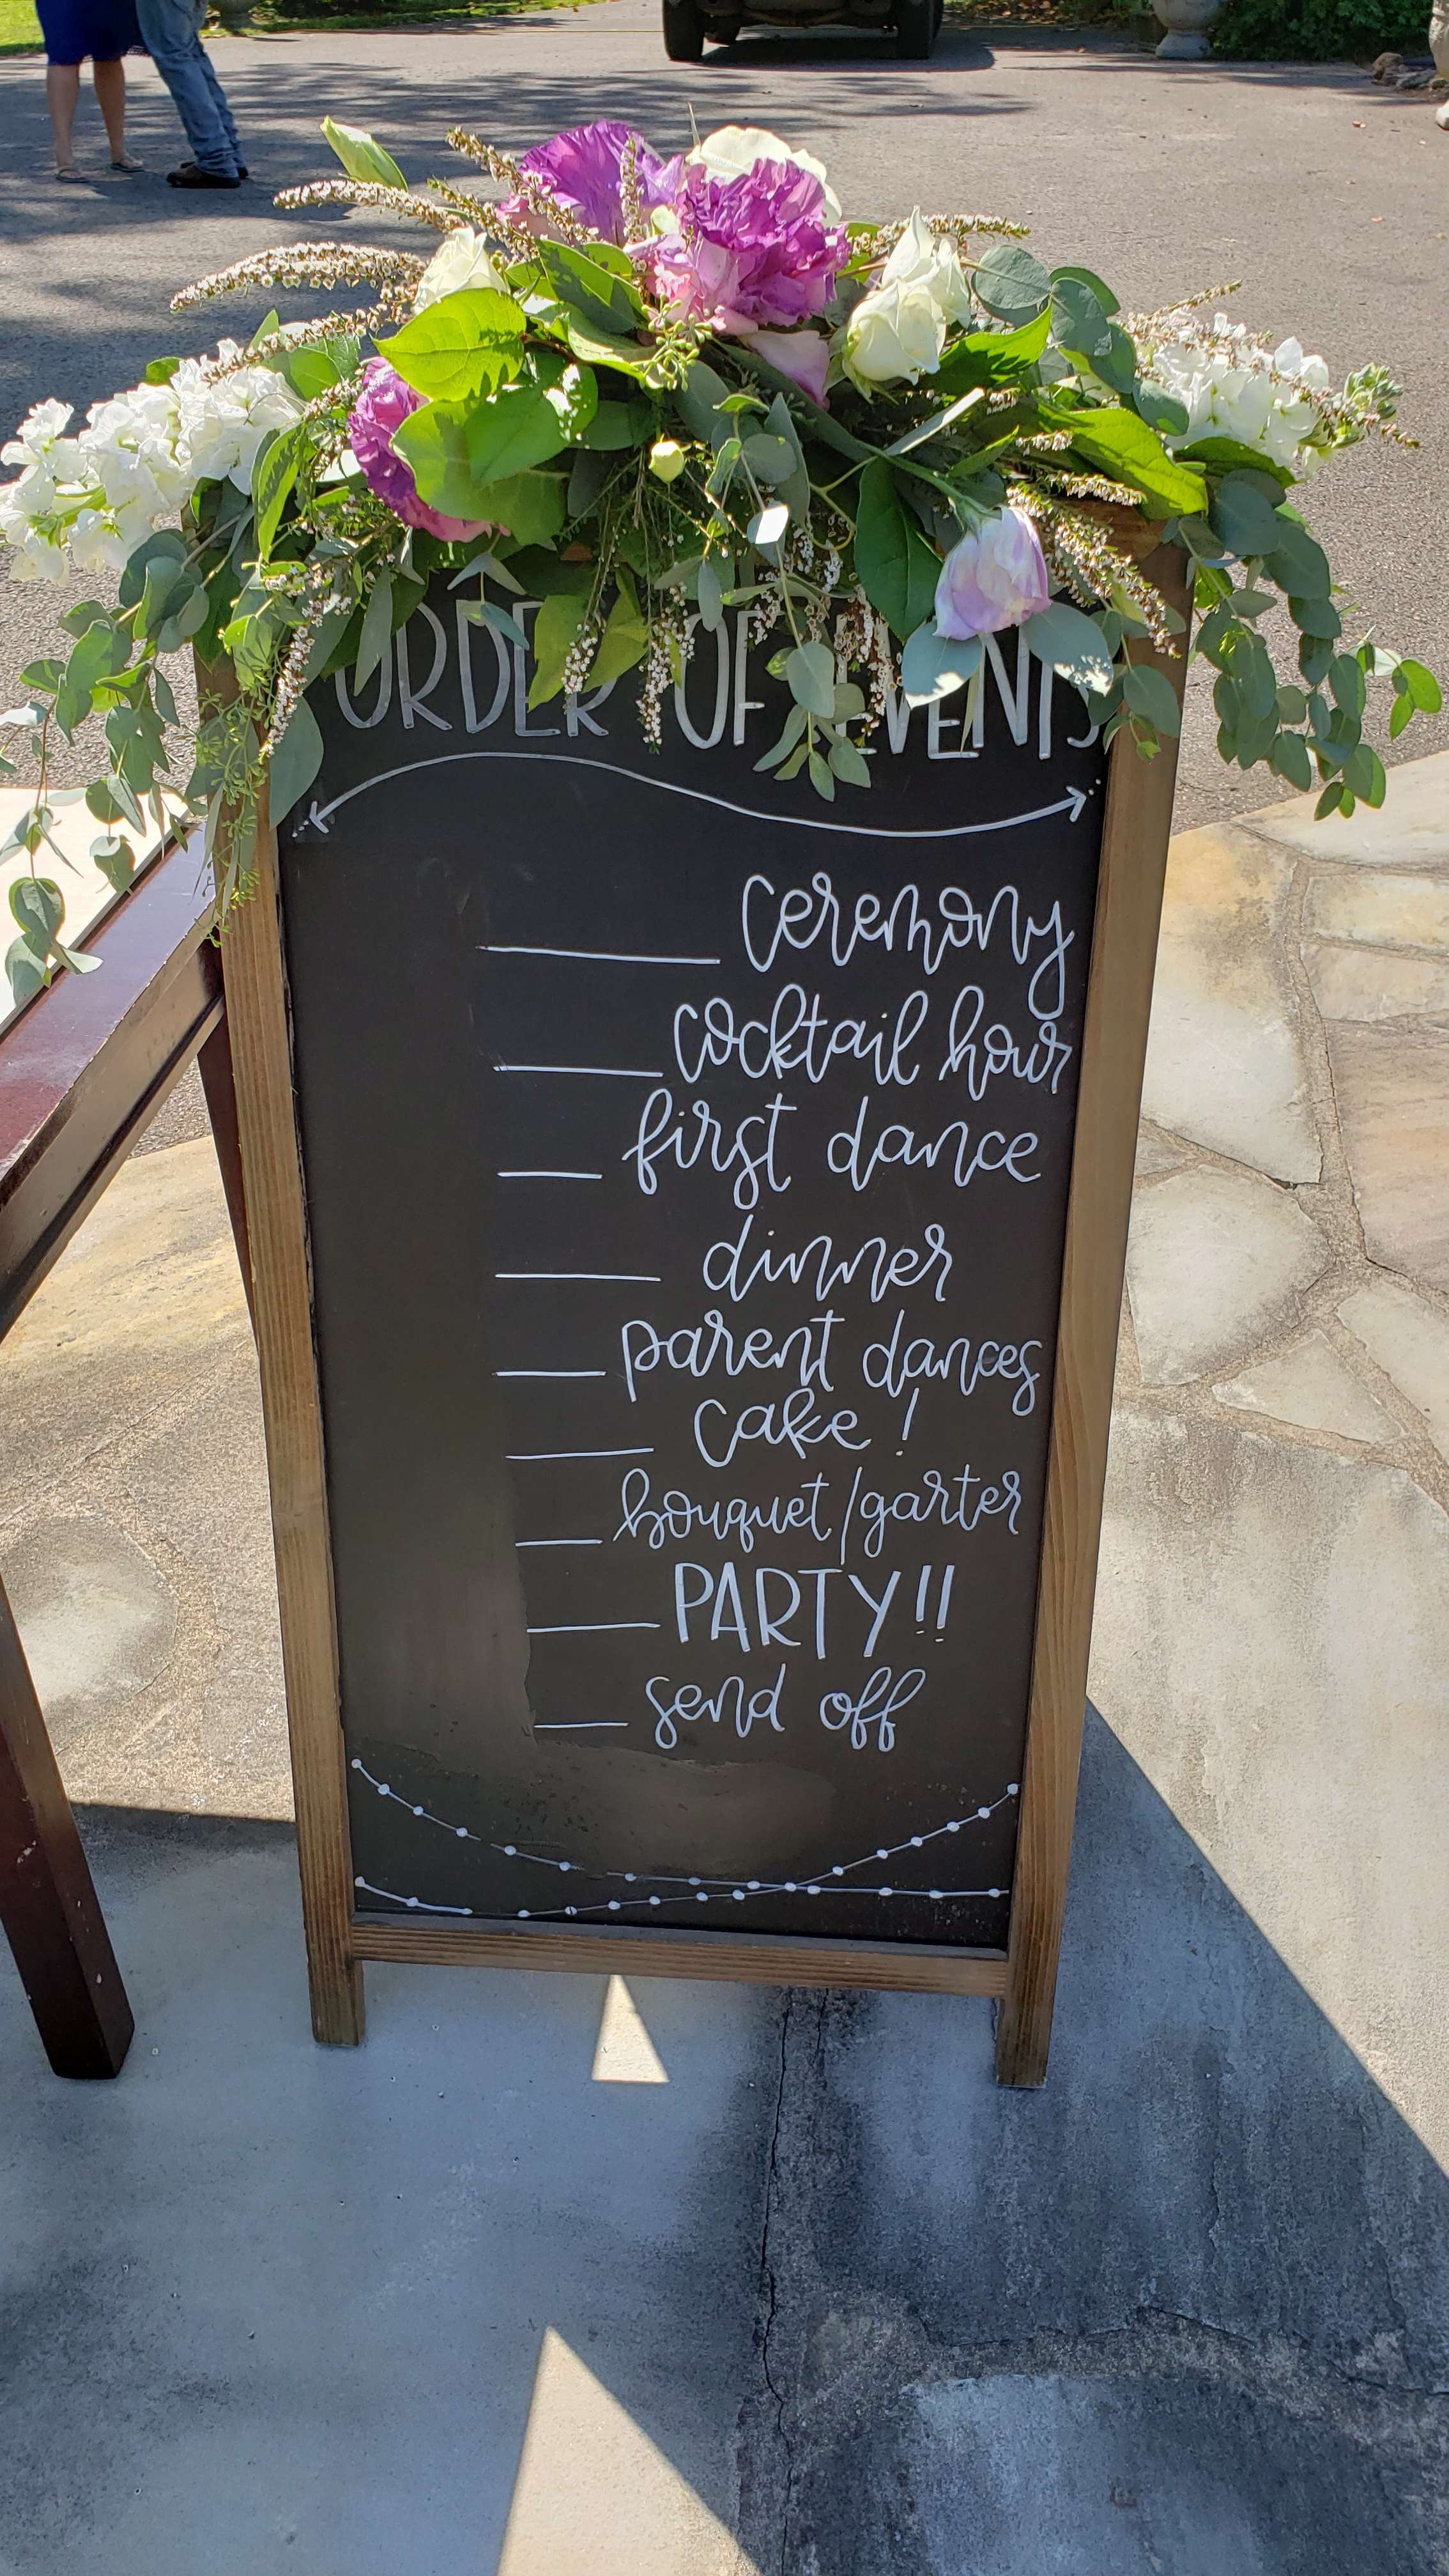 ORDER OF EVENTS
ceremony
cocktail hour
first dance
dinner
parent dances
cake!
bouquet/garter
PARTY!!
send off